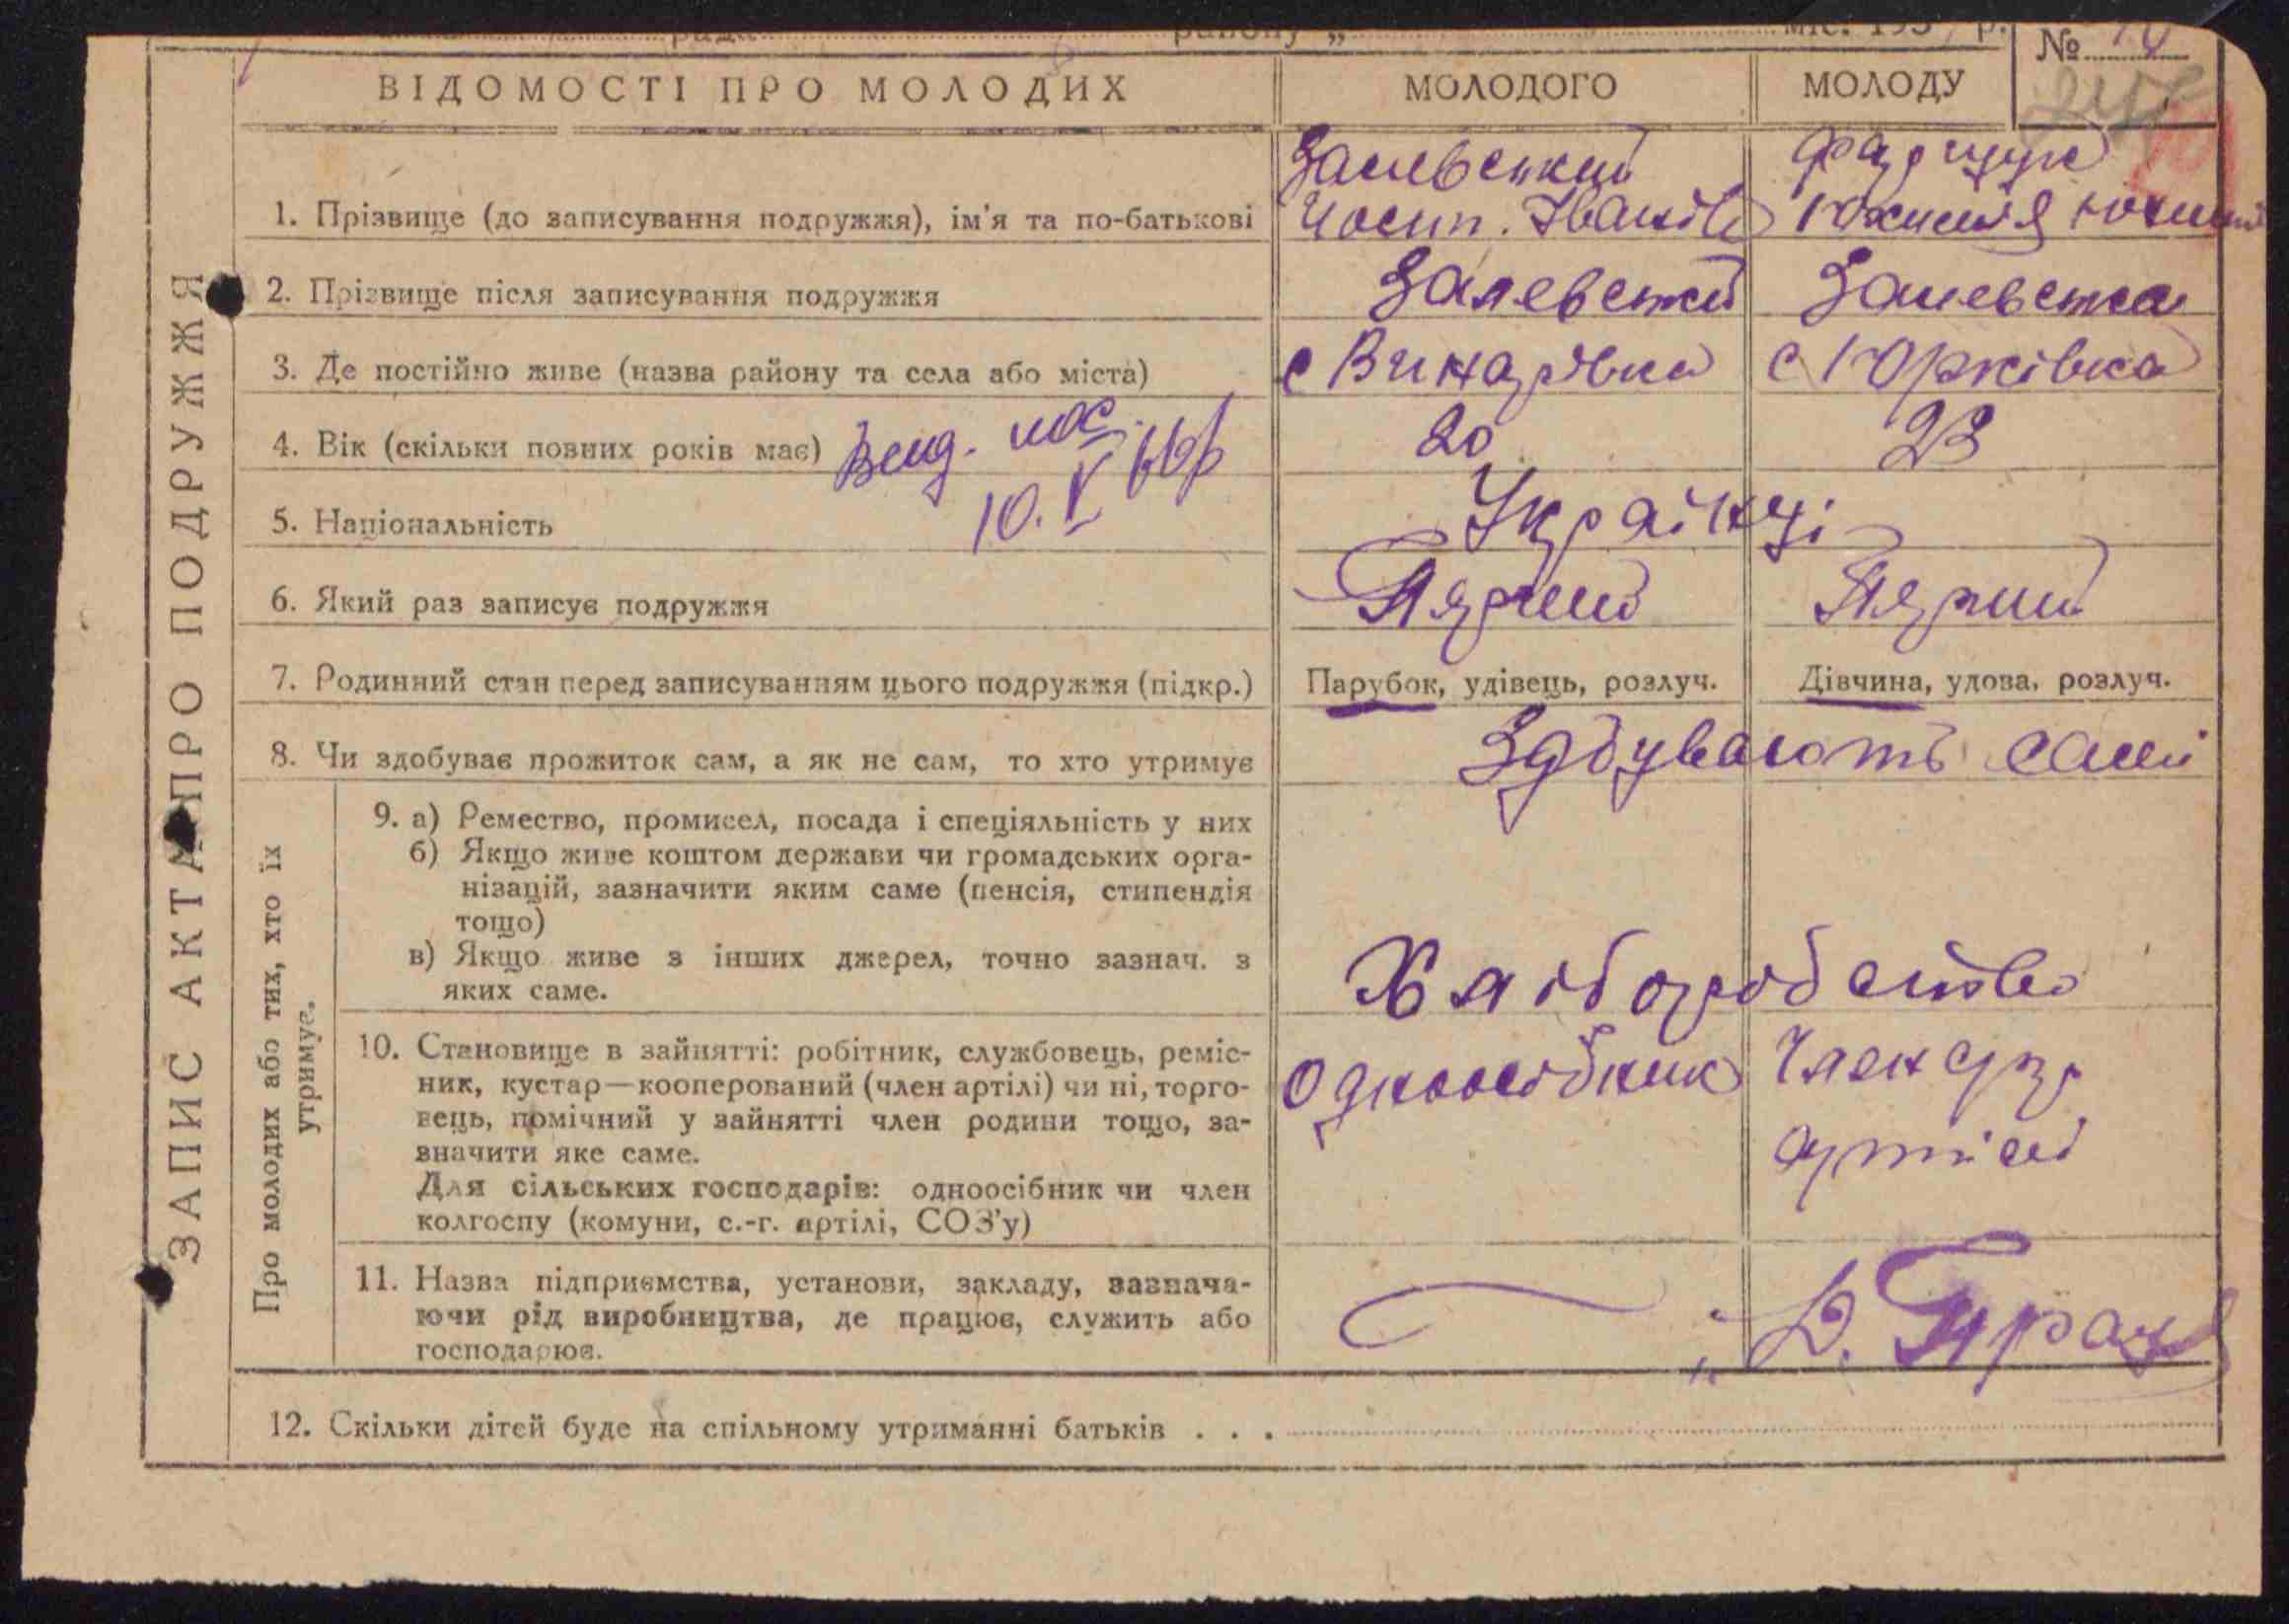 міс. 193 р.
№
ЗАПИС АКТА ПРО ПОДРУЖЖЯ
ВІДОМОСТІ ПРО МОЛОДИХ
МОЛОДОГО
МОЛОДУ
1. Прізвище (до записування подружжя), ім'я та по-батькові
Залевський
Йосип. Іванів
2. Прізвище після записування подружжя
Залевський
Залевська
3. Де постійно живе (назва району та села або міста)
с Винарівка
с Юрківка
4. Вік (скільки повних років має)
20
23
10. V
5. Національність
Українці
6. Який раз записує подружжя
Перший
Перший
7. Родинний стан перед записуванням цього подружжя (підкр.)
Парубок, удівець, розлуч.
Дівчина, удова, розлуч.
8. Чи здобуває прожиток сам, а як не сам, то хто утримує
Здбувають самі
Про молодих або тих, хто їх
утримує.
9. а) Ремество, промисел, посада і спеціяльність у них
б) Якщо живе коштом держави чи громадських орга-
нізацій, зазначити яким саме (пенсія, стипендія
тощо)
в) Якщо живе з інших джерел, точно зазнач. з
яких саме.
Хліборобство
10. Становище в зайнятті: робітник, службовець, реміс-
ник, кустар—кооперований (член артілі) чи ні, торго-
вець, помічний у зайнятті член родини тощо, за-
значити яке саме.
Для сільських господарів: одноосібник чи член
колгоспу (комуни, с.-г. артілі, СОЗ'у)
одноосібник
Член
артілі
11. Назва підприємства, установи, закладу, зазнача-
ючи рід виробництва, де працює, служить або
господарює.
12. Скільки дітей буде на спільному утриманні батьків . . .